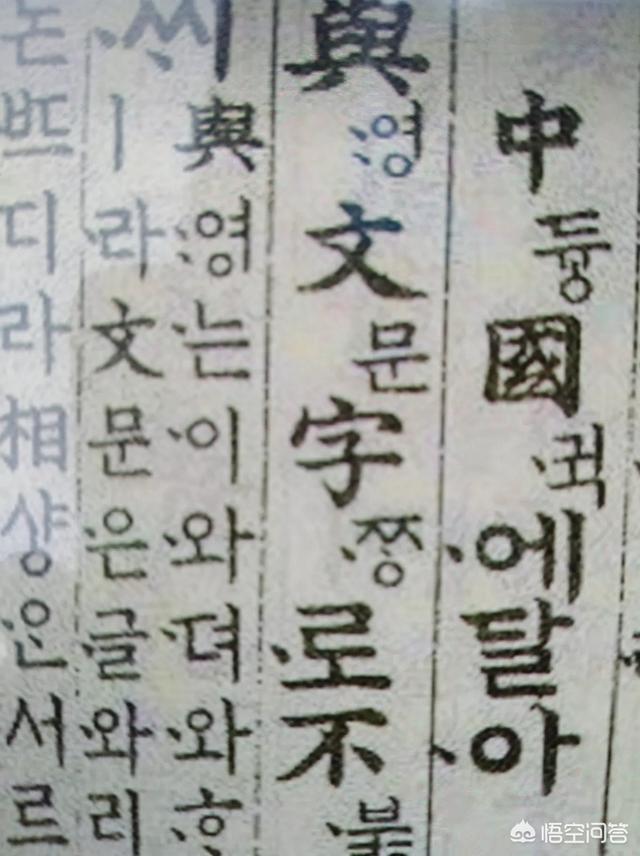 中듕國귁에달아
與영文문字ᄍᆞᆼ로不불
ᄊᆡ
與영는이와뎌와ᄒᆞ
ㅣ라文문은글와리
논ᄠᅳ디라相샹ᄋᆞᆫ서르
悟空问答